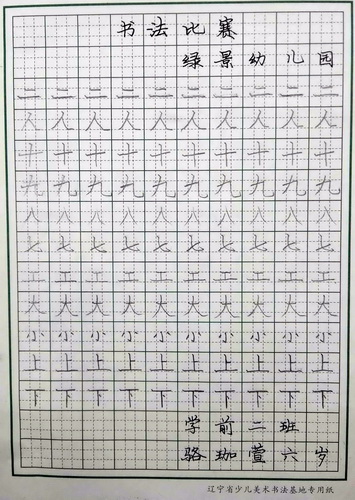 书法比赛
绿景幼儿园
二二二二二二二二二二
人人人人人人人人人人
十十十十十十十十十十
九九九九九九九九九九
八八八八八八八八八八
七七七七七七七七七七
工工工工工工工工工工
大大大大大大大大大大
小小小小小小小小小小
上上上上上上上上上上
下下下下下下下下下下
学前二班
骆珈萱六岁
辽宁省少儿美术书法基地专用纸